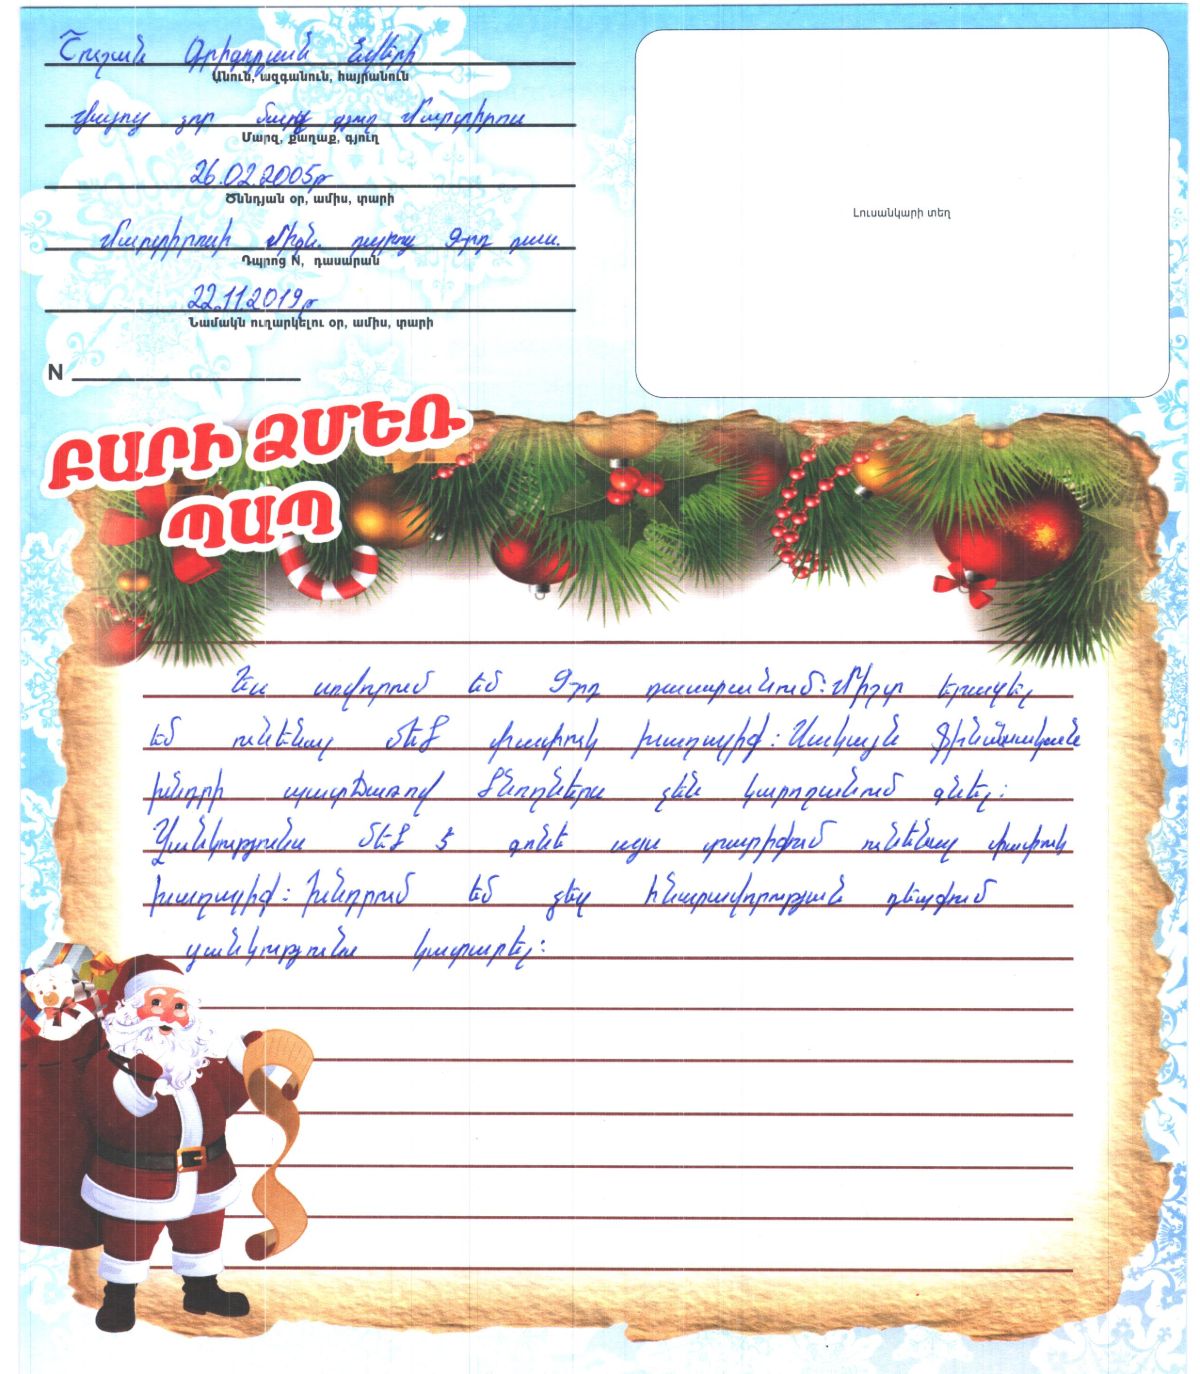 Շուշան Գրիգորյան Նվերի
Անուն, ազգանուն, հայրանուն
Վայոց ձոր մարզ գյուղ Մարտիրոս
Մարզ, քաղաք, գյուղ
26.02.2005թ
Ծննդյան օր, ամիս, տարի
Մարտիրոսի միջն. դպրոց 9րդ դաս.
Դպրոց N, դասարան
22.11.2019թ
Նամակն ուղարկելու օր, ամիս, տարի
Լուսանկարի տեղ
N
ԲԱՐԻ ՁՄԵՌ
ՊԱՊ
Ես սովորում եմ 9րդ դասարանում: Միշտ երազել
եմ ունենալ մեծ փափուկ խաղալիք: Սակայն ֆինանսական
խնդրի պատճառով ծնողներս չեն կարողանում գնել:
Ցանկությունս մեծ է գոնե այս տարիքում ունենալ փափուկ
խաղալիք: Խնդրում եմ ձեզ հնարավորության դեպքում
ցանկությունս կատարել: